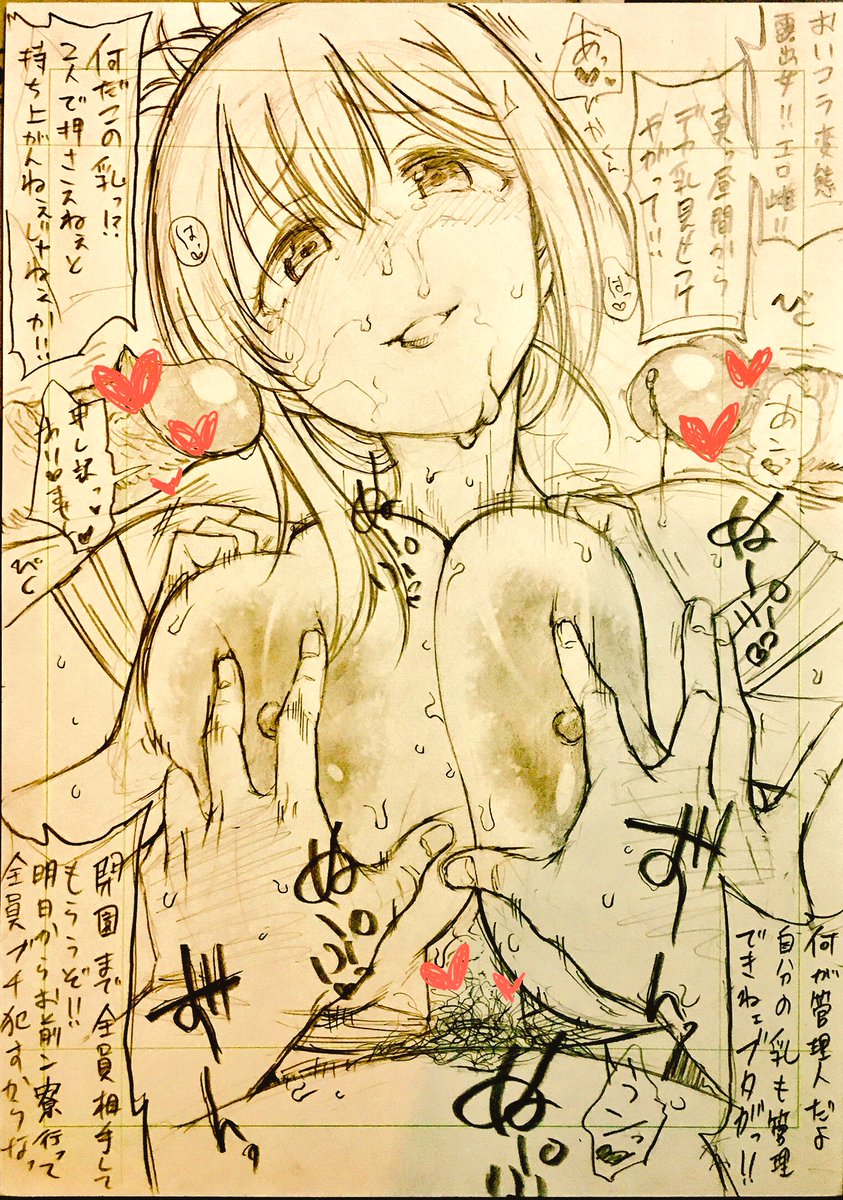 おいコラ変態
露出女!!エロ雌!!
真っ昼間から
デカ乳見せつけ
やがって!!
あっ
何だこの乳っ!?
2人で押さえねぇと
持ち上がんねぇじゃねぇか!!
はっ
びく
あん
申し訳っ
びく
ぬ
ぬ
何が管理人だよ
自分の乳も管理
できねェブタがっ!!
ん
閉園まで全員相手して
もらうぞ!!
明日からお前ン寮行って
全員ブチ犯すからなっ